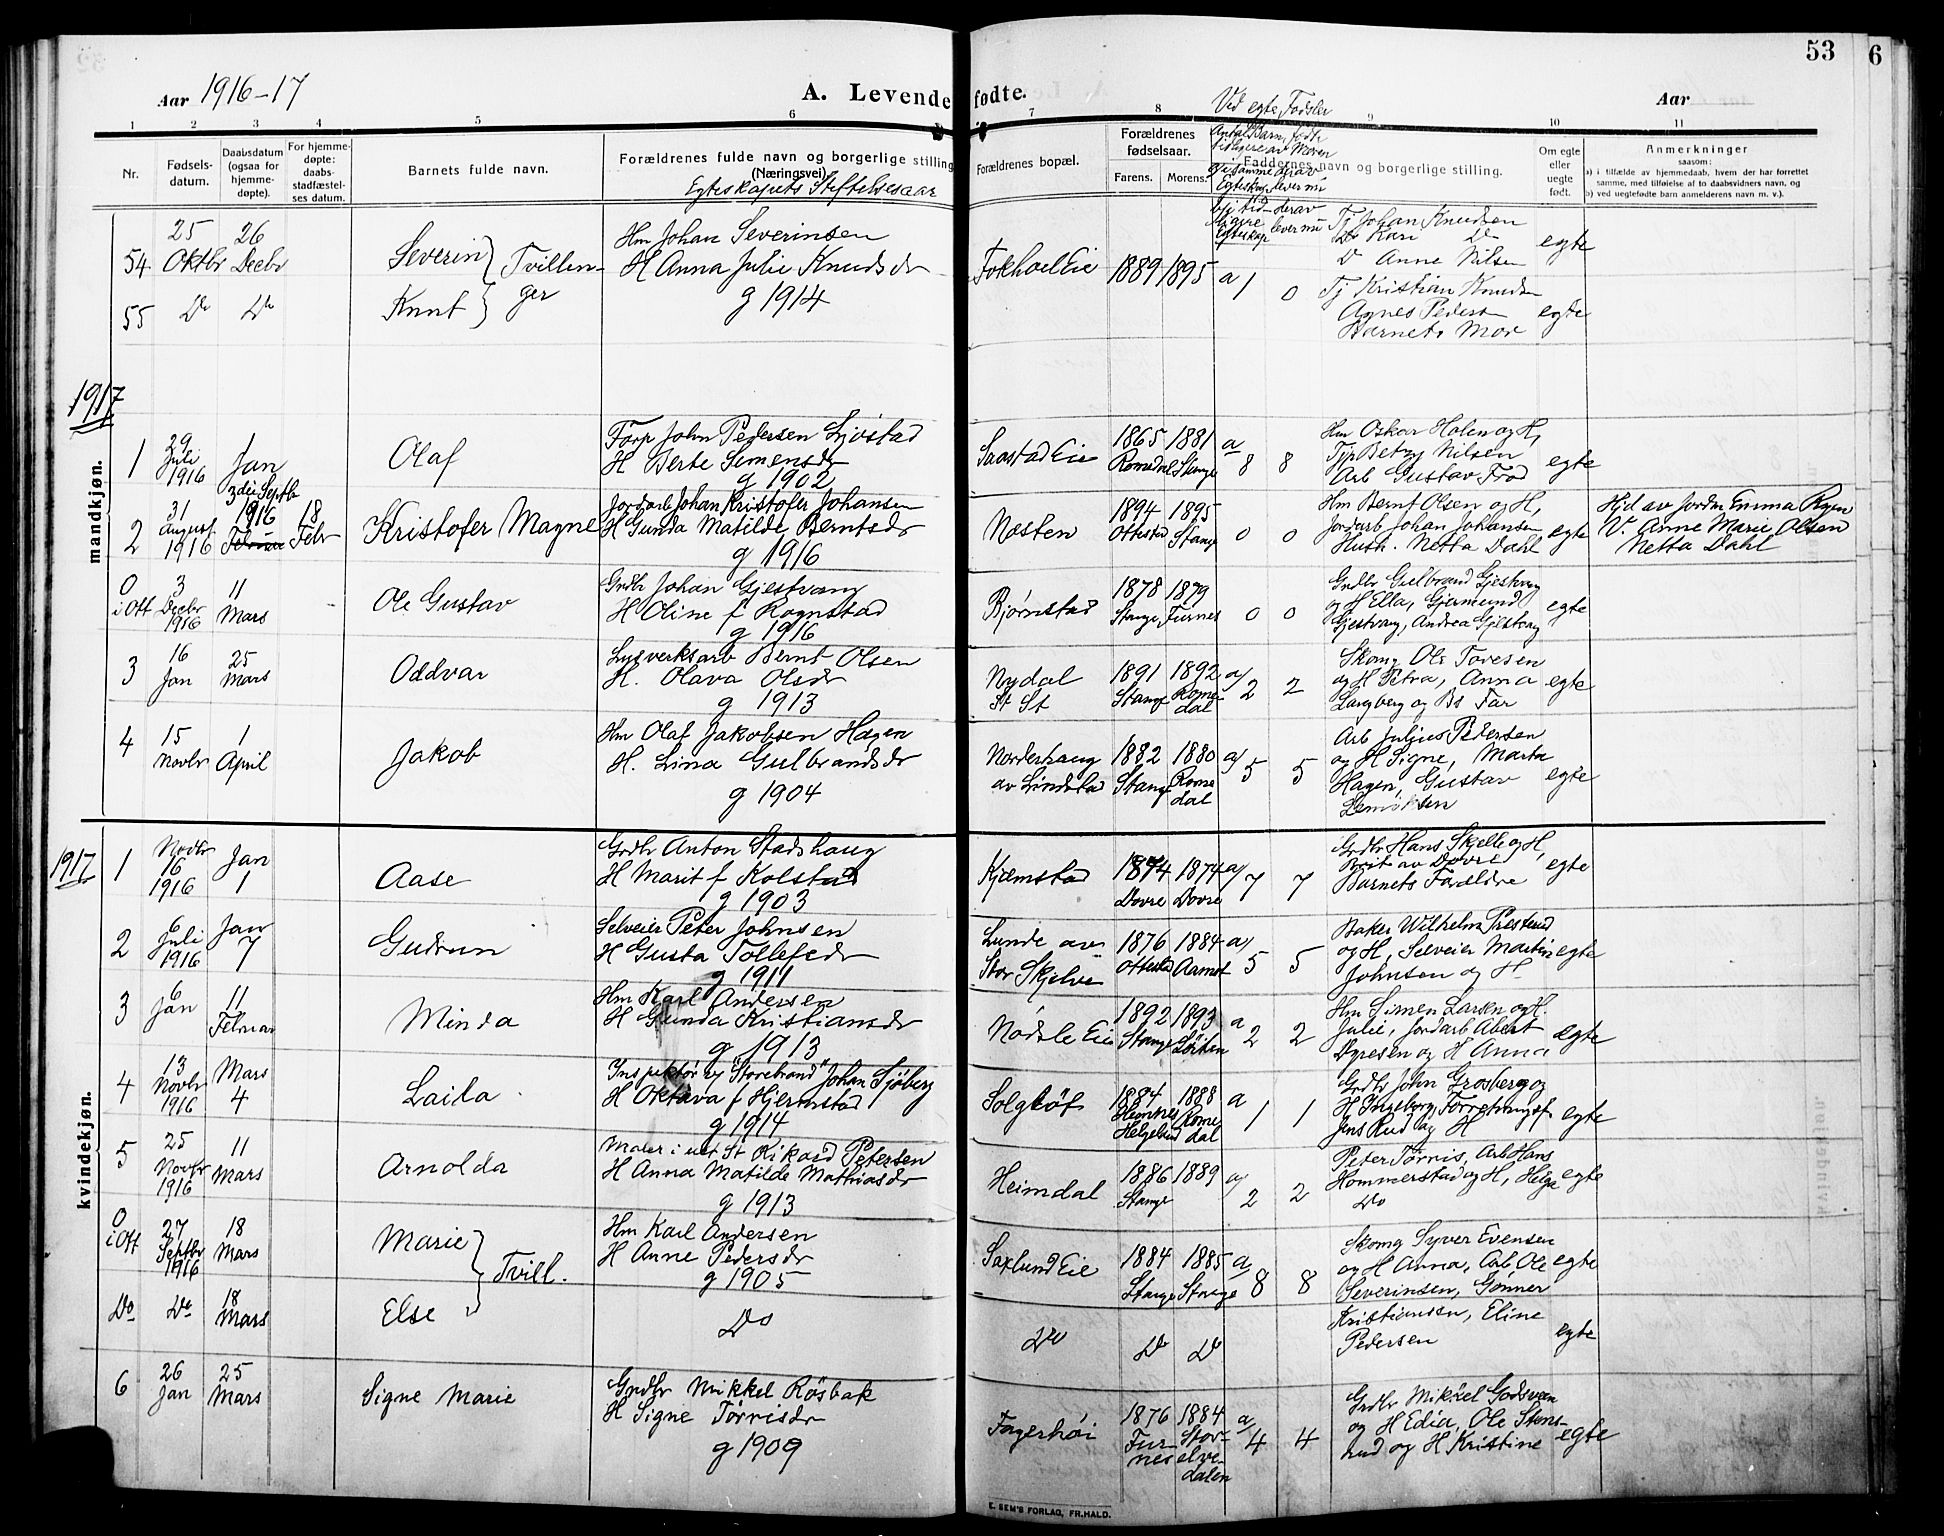 53
6
Aar 1916-17
A. Levende fødte.
Aar
1 2 3 4 5 6 7 8 9 10 11
Ved egte Fødsler
Antal Barn, født
tidligere av Moren
Nr.
Fødsels-
datum.
Daabsdatum
(ogsaa for
hjemme-
døpte).
For hjemme-
døpte:
daabs-
stadfæstel-
ses datum.
Barnets fulde navn.
Forældrenes fulde navn og borgerlige stilling
(Næringsvei).
Egteskapets Stiftelsesaar
Forældrenes bopæl.
Forældrenes
fødselsaar.
Farens. Morens.
Faddernes navn og borgerlige stilling.
Om egte
eller
uegte
født.
Anmerkninger
saasom:
a) i tilfælde av hjemmedaab, hvem der har forrettet
samme, med tilføielse af to daabsvidners navn, og
b) ved uegtefødte barn anmelderens navn m. v.).
mandkjøn.
54 25 Oktbr 26 Decbr Severin Tvillin-
Hm Johan Severinsen
H Anna Julie Knudsdr
g 1914
Fokhol Eie 1889 1895 a 1 0
Tj Johan Knudsen
Do Kari Do
D Anne Nilsen
egte
55 Do Do Knut ger
Tj Kristian Knudsen
Agnes Pedersen
Barnets Mor
egte
1917
1 29 Juli 1916 1 Jan Olaf
Forp John Pedersen
H Berte Simensdr
g 1902
Saastad Eie 1865 Romedal 1881 Stange a 8 8
Hm Oskar Holen og H,
Betzy Nilsen
Arb Gustav Frod
egte
2 31 August 1916 3die Septb 1916 Februar 18 Febr Kristofer Magne
Jordarb Johan Kristofer Johansen
H Gunda Matilde Berntsdr
g 1916
Næsten 1894 Ottestad 1895 Stange 0 0
Hm Bernt Olsen og H,
Jordarb Johan Johansen
Hush. Netta Dahl
egte
Hjd av Jordm Emma
V. Anne Marie Olsen
Netta Dahl
0 i Ott 3 Decbr 1916 11 Mars Ole Gustav
Grdbr Johan Gjestvang
H Oline f Rognstad
g 1916
Bjørnstad 1878 Stange 1879 Furnes 0 0
Grdbr Gulbrand Gjestvang
og H Ella, Gjermund
Gjestvang, Andrea Gjestvang
egte
3 16 Jan 25 Mars Oddvar
Lysverksarb Bernt Olsen
H. Olava Olsdr
g 1913
Nydal
St St 1891 Stange 1892 Romedal a/ 2 2
Skomg Ole Toresen
og H Petra, Anna
Langberg og Bs Far
egte
4 15 Novbr 1 April Jakob
Hm Olaf Jakobsen Hagen
H. Lina Gulbrandsdr
g 1904
Norderhaug
av Lindstad 1882 Stange 1880 Romedal a/ 5 5
Arb Julius Pedersen
og H Signe, Marta
Hagen, Gustav
egte
kvindekjøn.
1917
1 Novbr 16 1916 Jan 1 Aase
Grdbr Anton Stadshaug
H Marit f Kolstad
g 1903
Kjemstad 1874 Dovre 1874 Dovre a/ 7 7
Grdbr Hans Skjelle og H,
Brit av Dovre
Barnets Forældre
egte
2 6 Juli 1916 Jan 7 Gudrun
Selveier Peter Johnsen
H Gusta Tollefsdr
g 1911
Lunde av
Stor Skjelve 1876 Ottestad 1884 Aamot a/ 5 5
Baker Wilhelm Prestrud
og H, Selveier Martin
Johnsen og H
egte
3 6 Jan 11 Februar Minda
Hm Karl Andersen
H Gunda Kristiansdr
g 1913
Nødsle Eie 1892 Stange 1893 Løiten a 2 2
Hm Simen Larsen og H.
Julie, Jordarb Abert
Dyresen og H Anna
egte
4 13 Novbr 1916 Mars 4 Laila
Inspektør vj "Storebrand" Johan Sjøberg
H Oktava f Hjermstad
g 1914
Solgløt 1884 Hemnes Helgeland 1888 Romedal a 1 1
Grdb John Grosberg og
H Ingeborg, Forretningsf
Jens Rud og H
egte
5 25 Novbr 1916 11 Mars Arnolda
Maler i Rikard Petersen
H Anna Matilde Mathiasdr
g 1913
Heimdal 1886 Stange 1889 a/ 2 2
Peter Tørris, Arb Hans
Hommerstad og H, Helga
Do
egte
0 i Ott 27 Septbr 1916 18 Mars Marie Tvill.
Hm Karl Andersen
H Anne Pedersdr
g 1905
Saxlund Eie 1884 Stange 1885 Stange a 8 8
Skomg Syver Evensen
og H Anna, Arb Ole
Severinsen, Gunner
Kristiansen, Eline
Pedersen
egte
Do Do 18 Mars Else
Do
Do Do Do
egte
6 26 Jan 25 Mars Signe Marie
Grdbr Mikkel Røsbak
H Signe Tørrisdr
g 1909
Fagerhøi 1876 Fur-
nes 1884 Stor-
elve-
dalen a/ 4 4
Grdbr Mikkel Godsveen
og H Edia, Ole Stens-
rud og H Kristine
egte
E. SEM'S FORLAG, FR.HALD.